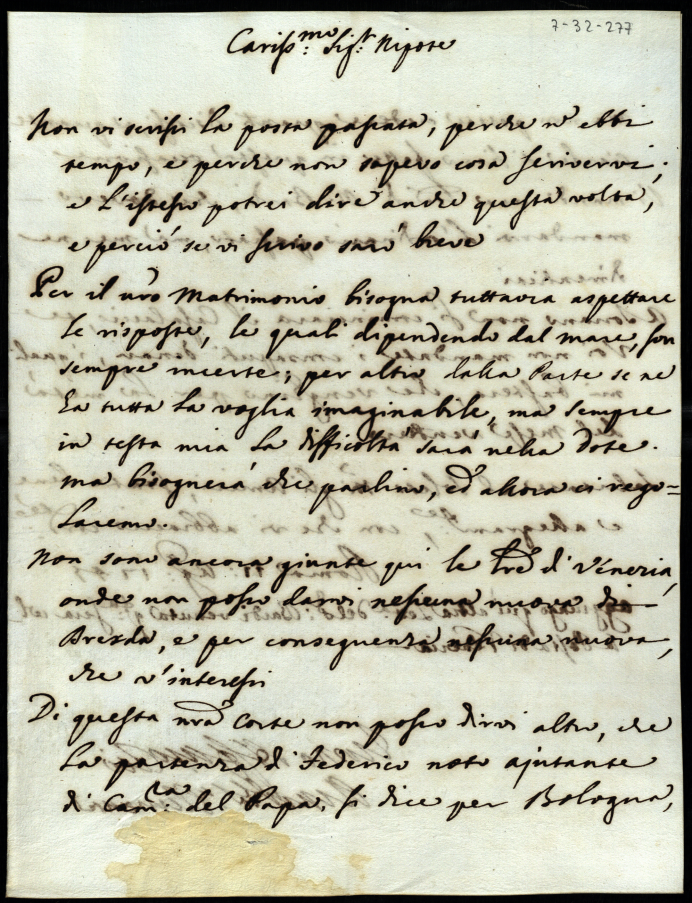 7-32-277
Cariss.mo Sig.r Nipote
Non vi scrissi la posta passata, perche nō ebbi
tempo, e perche non sapevo cosa scrivervi;
e l'istesso potrei dire anche questa volta,
e perciò se vi scrivo sarò breve
Per il vr̄o Matrimonio bisogna tuttavia aspettare
le risposte, le quali dipendendo dal mare, son
sempre incerte; per altro dalla Parte se ne
ha tutta la voglia imaginabile, ma sempre
in testa mia la difficoltà sarà nella Dote.
ma bisognerà che parlino, ed allora ci rego=
laremo.
Non sono ancora giunte qui le lr̄e di Venezia,
onde non posso darvi nessuna nuova di
Brescia, e per conseguenza nessuna nuova,
che v'interessi
Di questa nr̄a Corte non posso dirvi altro, che
la partenza di Federico noto ajutante
di Cam.ra del Papa, si dice per Bologna,